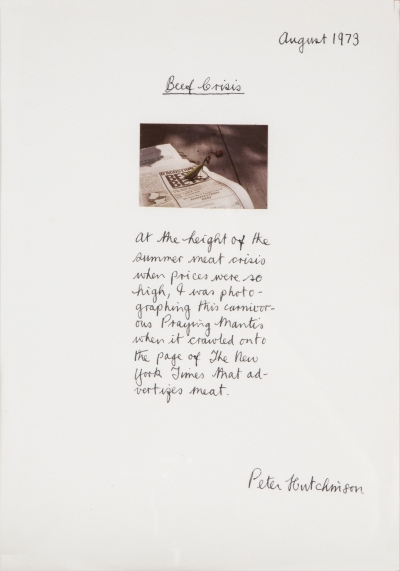 August 1973
Beef Crisis
At the height of the
summer meat crisis
when prices were so
high, I was photo-
graphing this carnivor-
ous Praying Mantis
when it crawled onto
the page of The New
York Times that ad-
vertizes meat.
Peter Hutchinson